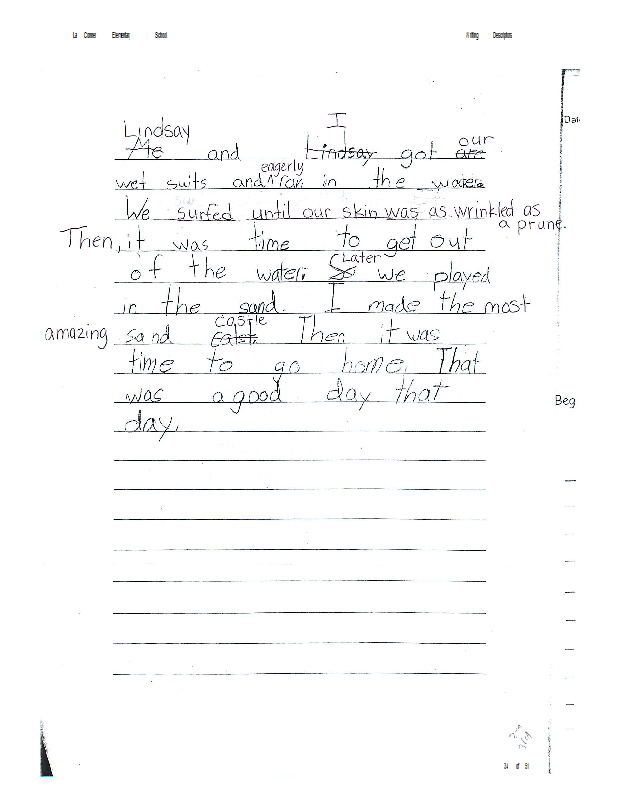 La Conner Elementary School Writing Descriptors
Dat
Lindsay I
Me and Lindsay got our are
eagerly
wet suits and ^ ran in the water
We surfed until our skin was as wrinkled as
a prune.
Then, it was time to get out
of the water. So Later we played
in the sand. I made the most
amazing sand castle Then it was
time to go home. That
was a good day that
Beg
day.
34 of 91